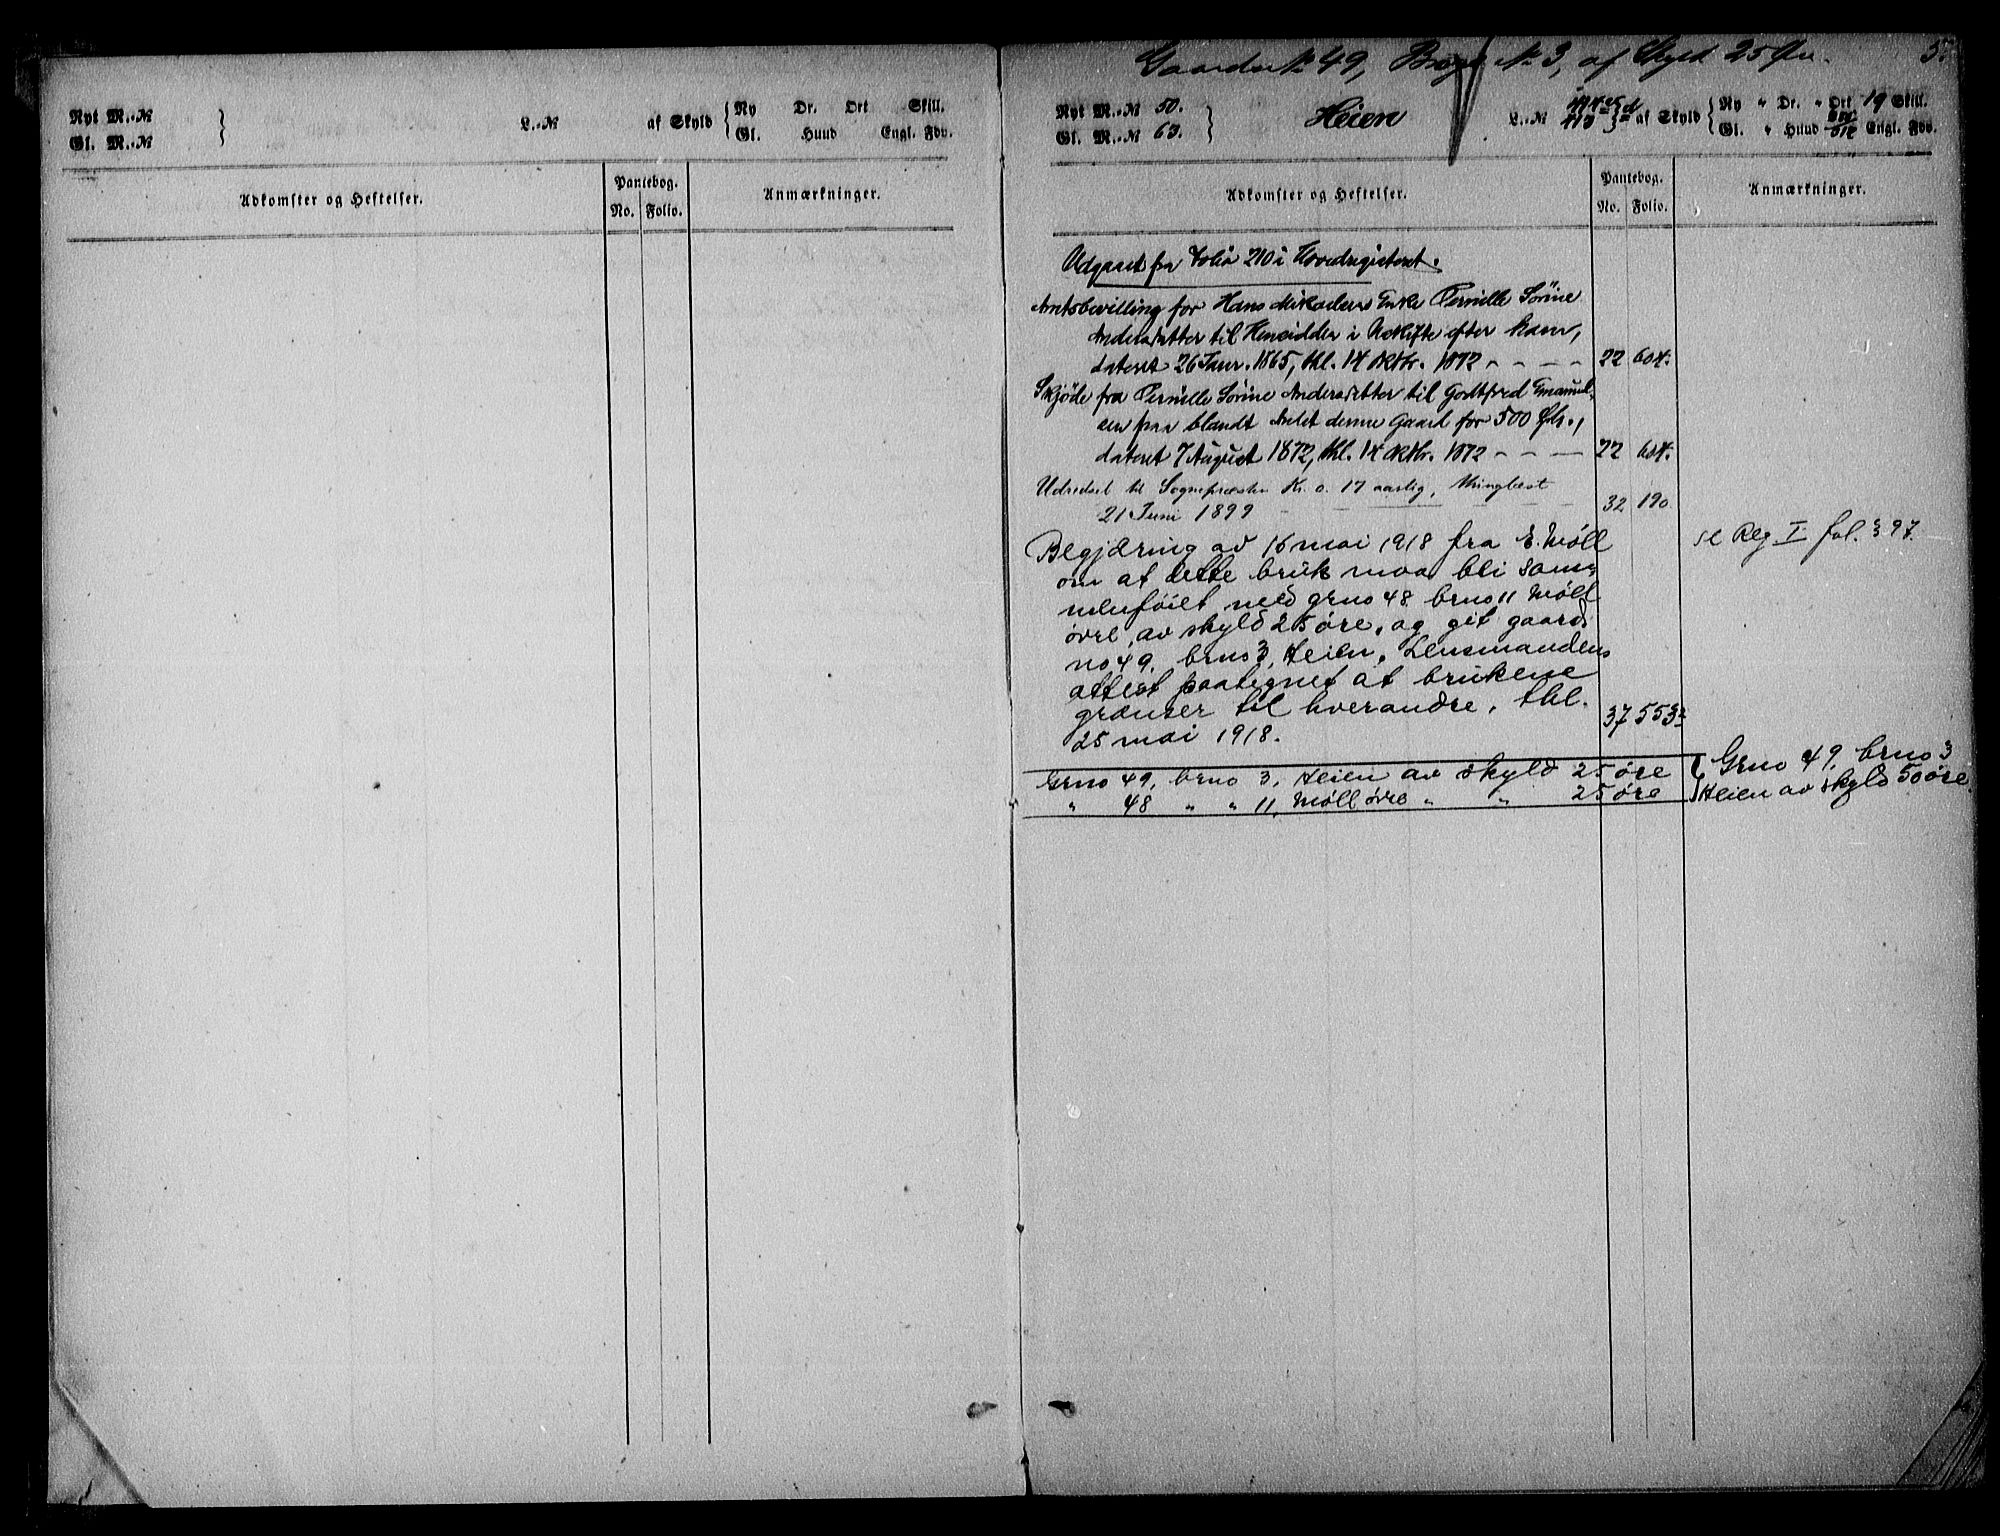 Nyt M.-№
Gl. M.-№
L.-№
af Skyld
Ny Dr. Ort Skill.
Gl. Huud Engl. Fdv.
Adkomster og Heftelser.
Pantebog.
No. Folio.
Anmærkninger.
Gaards № 49, Brugs № 3, af Skyld 25 Øre.
5.
Nyt M.-№ 50.
Gl. M.-№ 63.
Heien
L.-№
af Skyld
Ny " Dr. " Ort 19 Skill.
Gl. " Huud Engl. Fdv.
Adkomster og Heftelser.
Pantebog.
No. Folio.
Anmærkninger.
Udgaaet fra Folio 210 i Hovedregisteret.
Amtsbevilling for Hans Mikaelsens Enke Pernille Sörine
Andersdatter til Hensidden i Uskifte efter ham,
dateret 26 Janr. 1865, thl. 14 Oktbr. 1872 - - - - 22 604.
Skjöde fra Pernille Sörine Andersdatter til Godtfred Emanuel-
sen paa blandt Andet denne Gaard for 500 Spd.,
dateret 7 August 1872, thl. 14 Oktbr. 1872 - - - 22 604.
Udredsel til Sognepræsten Kr. 0. 17 aarlig, thinglæst
21 Juni 1899 - - - - 32 190
Begjæring av 16 mai 1918 fra E. Møll
om at dette bruk maa bli sam-
menføiet med grno 48 brno 11 Møll
øvre, av skyld 25 øre, og git gaards
no 49, brno 3, Heien. Lensmandens
attest paategnet at brukene
grænser til hverandre, thl.
25 mai 1918. 37 553
se Reg I fol. 397.
Grno 49, brno 3, Heien av skyld 25 øre
" 48 " " 11, Møll øvre " " 25 øre
Grno 49, brno 3
Heien av skyld 50 øre.